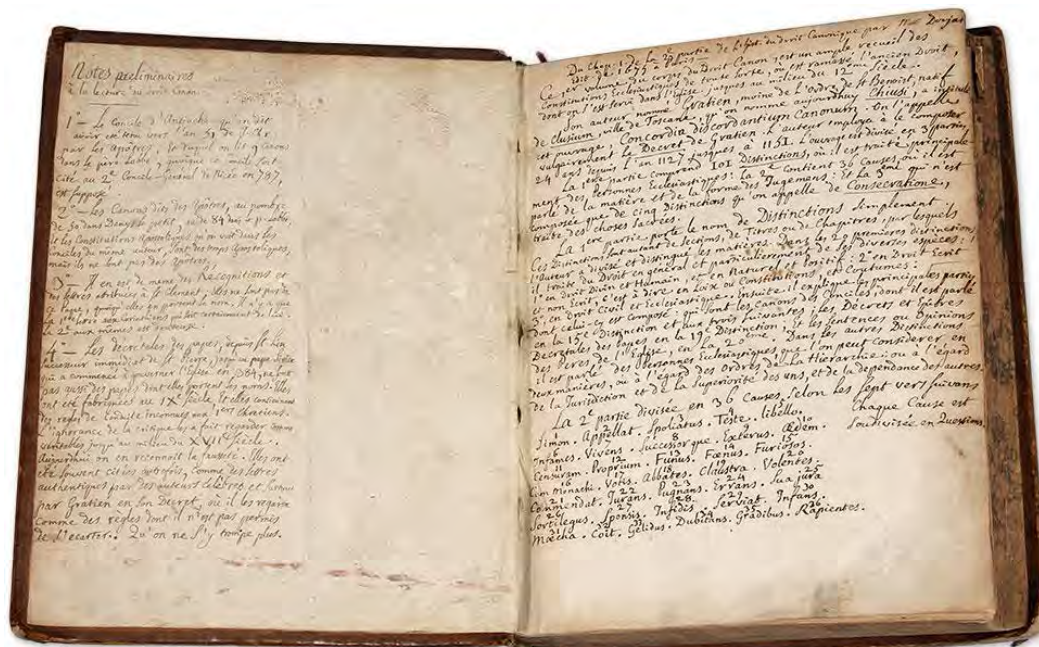 Notes preliminaires
à la lecture du Droit Canon.
1° — Le Concile d'Antioche qu'on dit
avoir été tenu vers l'an 51 de J. Chr.
par les apôtres, et duquel on lit 9 Canons
dans le père Labbe, quoique ce concile soit
cité au 2e Concile-Général de Nicée en 787,
est supposé.
2° — Les Canons dits des Apôtres, au nombre
de 50 dans Denys le petit, et de 84 dans le p. Labbe,
et les Constitutions Apostoliques qu'on voit dans les
Conciles du même auteur, sont des temps Apostoliques,
mais ils ne sont pas des apôtres.
3° — Il en est de même des Recognitions et
des lettres attribuées à St Clement, elles ne sont pas de
ce Pape, quoiqu'elles en portent le nom. Il n'y a que
la 1ere lettre aux Corinthiens qui soit certainement de lui.
La 2e aux mêmes est douteuse.
4° — Les decretales des papes, depuis St Lin
successeur immediat de St Pierre, jusqu'au pape Sirice
qui a commencé à gouverner l'Eglise en 384, ne sont
pas aussi des papes dont elles portent les noms. Elles
ont été fabriquées au IXe Siècle, et elles contiennent
des regles de conduite inconnues aux 1ers Chrétiens.
L'ignorance de la critique les a fait regarder comme
veritables jusqu'au milieu du XVIIe Siècle.
Aujourd'hui on en reconnoît la fausseté. Elles ont
été souvent citées autrefois, comme des lettres
authentiques par des auteurs célèbres, et surtout
par Gratien en son Decret, où il les regarde
comme des règles dont il n'est pas permis
de s'ecarter. Qu'on ne s'y trompe plus.
Du Chap. 1 de la 2e partie de l'hist. du droit Canonique par Mr Doujat
Edit. de 1675 à Paris —
Ce 1er volume du corps du Droit Canon est un ample recueil des
Constitutions Ecclesiastiques de toute sorte, où est ramassé l'ancien Droit,
dont on s'est servi dans l'Eglise jusques au milieu du 12ème Siècle.
Son auteur nommé Gratien, moine de l'Ordre de St Benoist, natif
de Clusium, ville de Toscane, qu'on nomme aujourdhuy Chiusi, a intitulé
cet ouvrage, Concordia discordantium Canonum. On l'appelle
vulgairement le Decret de Gratien. L'auteur employa à le composer
24 ans depuis l'an 1127 jusques à 1151. L'ouvrage est divisé en 3 parties.
La 1ere partie comprend 101 Distinctions, où il est traité principale-
ment des Personnes Ecclesiastiques: la 2e contient 36 Causes, où il est
parlé de la matière et de la forme des Jugemens: Et la 3eme qui n'est
composée que de cinq Distinctions qu'on appelle de Consecratione,
traite des choses Sacrées.
La 1ere partie porte le nom de Distinctions simplement.
Ces Distinctions sont autant de Sections, de Titres ou de Chapitres, par lesquels
l'Auteur a divisé et distingué les matières. Dans les 20 premieres distinctions
il traite du Droit en général et particulierement de ses diverses especes:
1° en Droit Divin et Humain, ou en Naturel et Positif: 2° en Droit Ecrit
et non Ecrit, c'est à dire en Loix ou Constitutions, et Coutumes:
3° en droit Civil et Ecclesiastique. Ensuite il explique les principales parties
dont celui-cy est composé: qui sont les Canons des Conciles, dont il est parlé
en la 15e Distinction et aux trois suivantes; les Décrets et Epîtres
Decretales des Papes en la 19e Distinction; Et les Sentences ou Opinions
des Peres de l'Eglise, en la 20eme. Dans les autres Distinctions
il est parlé des Personnes Ecclesiastiques que l'on peut considérer en
deux manieres, ou à l'égard des Ordres de la Hierarchie: ou à l'égard
de la Jurisdiction et de la Superiorité des uns, et de la dependance des autres.
La 2e partie divisée en 36 Causes, selon les sept vers suivans
Chaque Cause est
soudivisée en Questions.
1 2 3 4 5
Simon. Appellat. Spoliatus. Teste. libello.
6 7 8 9 10
Infames. Vivens. Successorque. Exterus. Ædem.
11 12 13 14 15
Censuram. Proprium. Funus. Fœnus. Furiosos.
16 17 18 19 20
Cum Monachi. Votis. Abbates. Claustra. Volentes.
21 22 23 24 25
Commendat. Jurans. Pugnans. Errans. Sua jura
26 27 28 29 30
Sortilegus. Sponsis. Infidis. Serviat. Infans.
31 32 33 34 35 36
Mœcha. Coit. Gelidus. Dubitans. Gradibus. Rapientes.